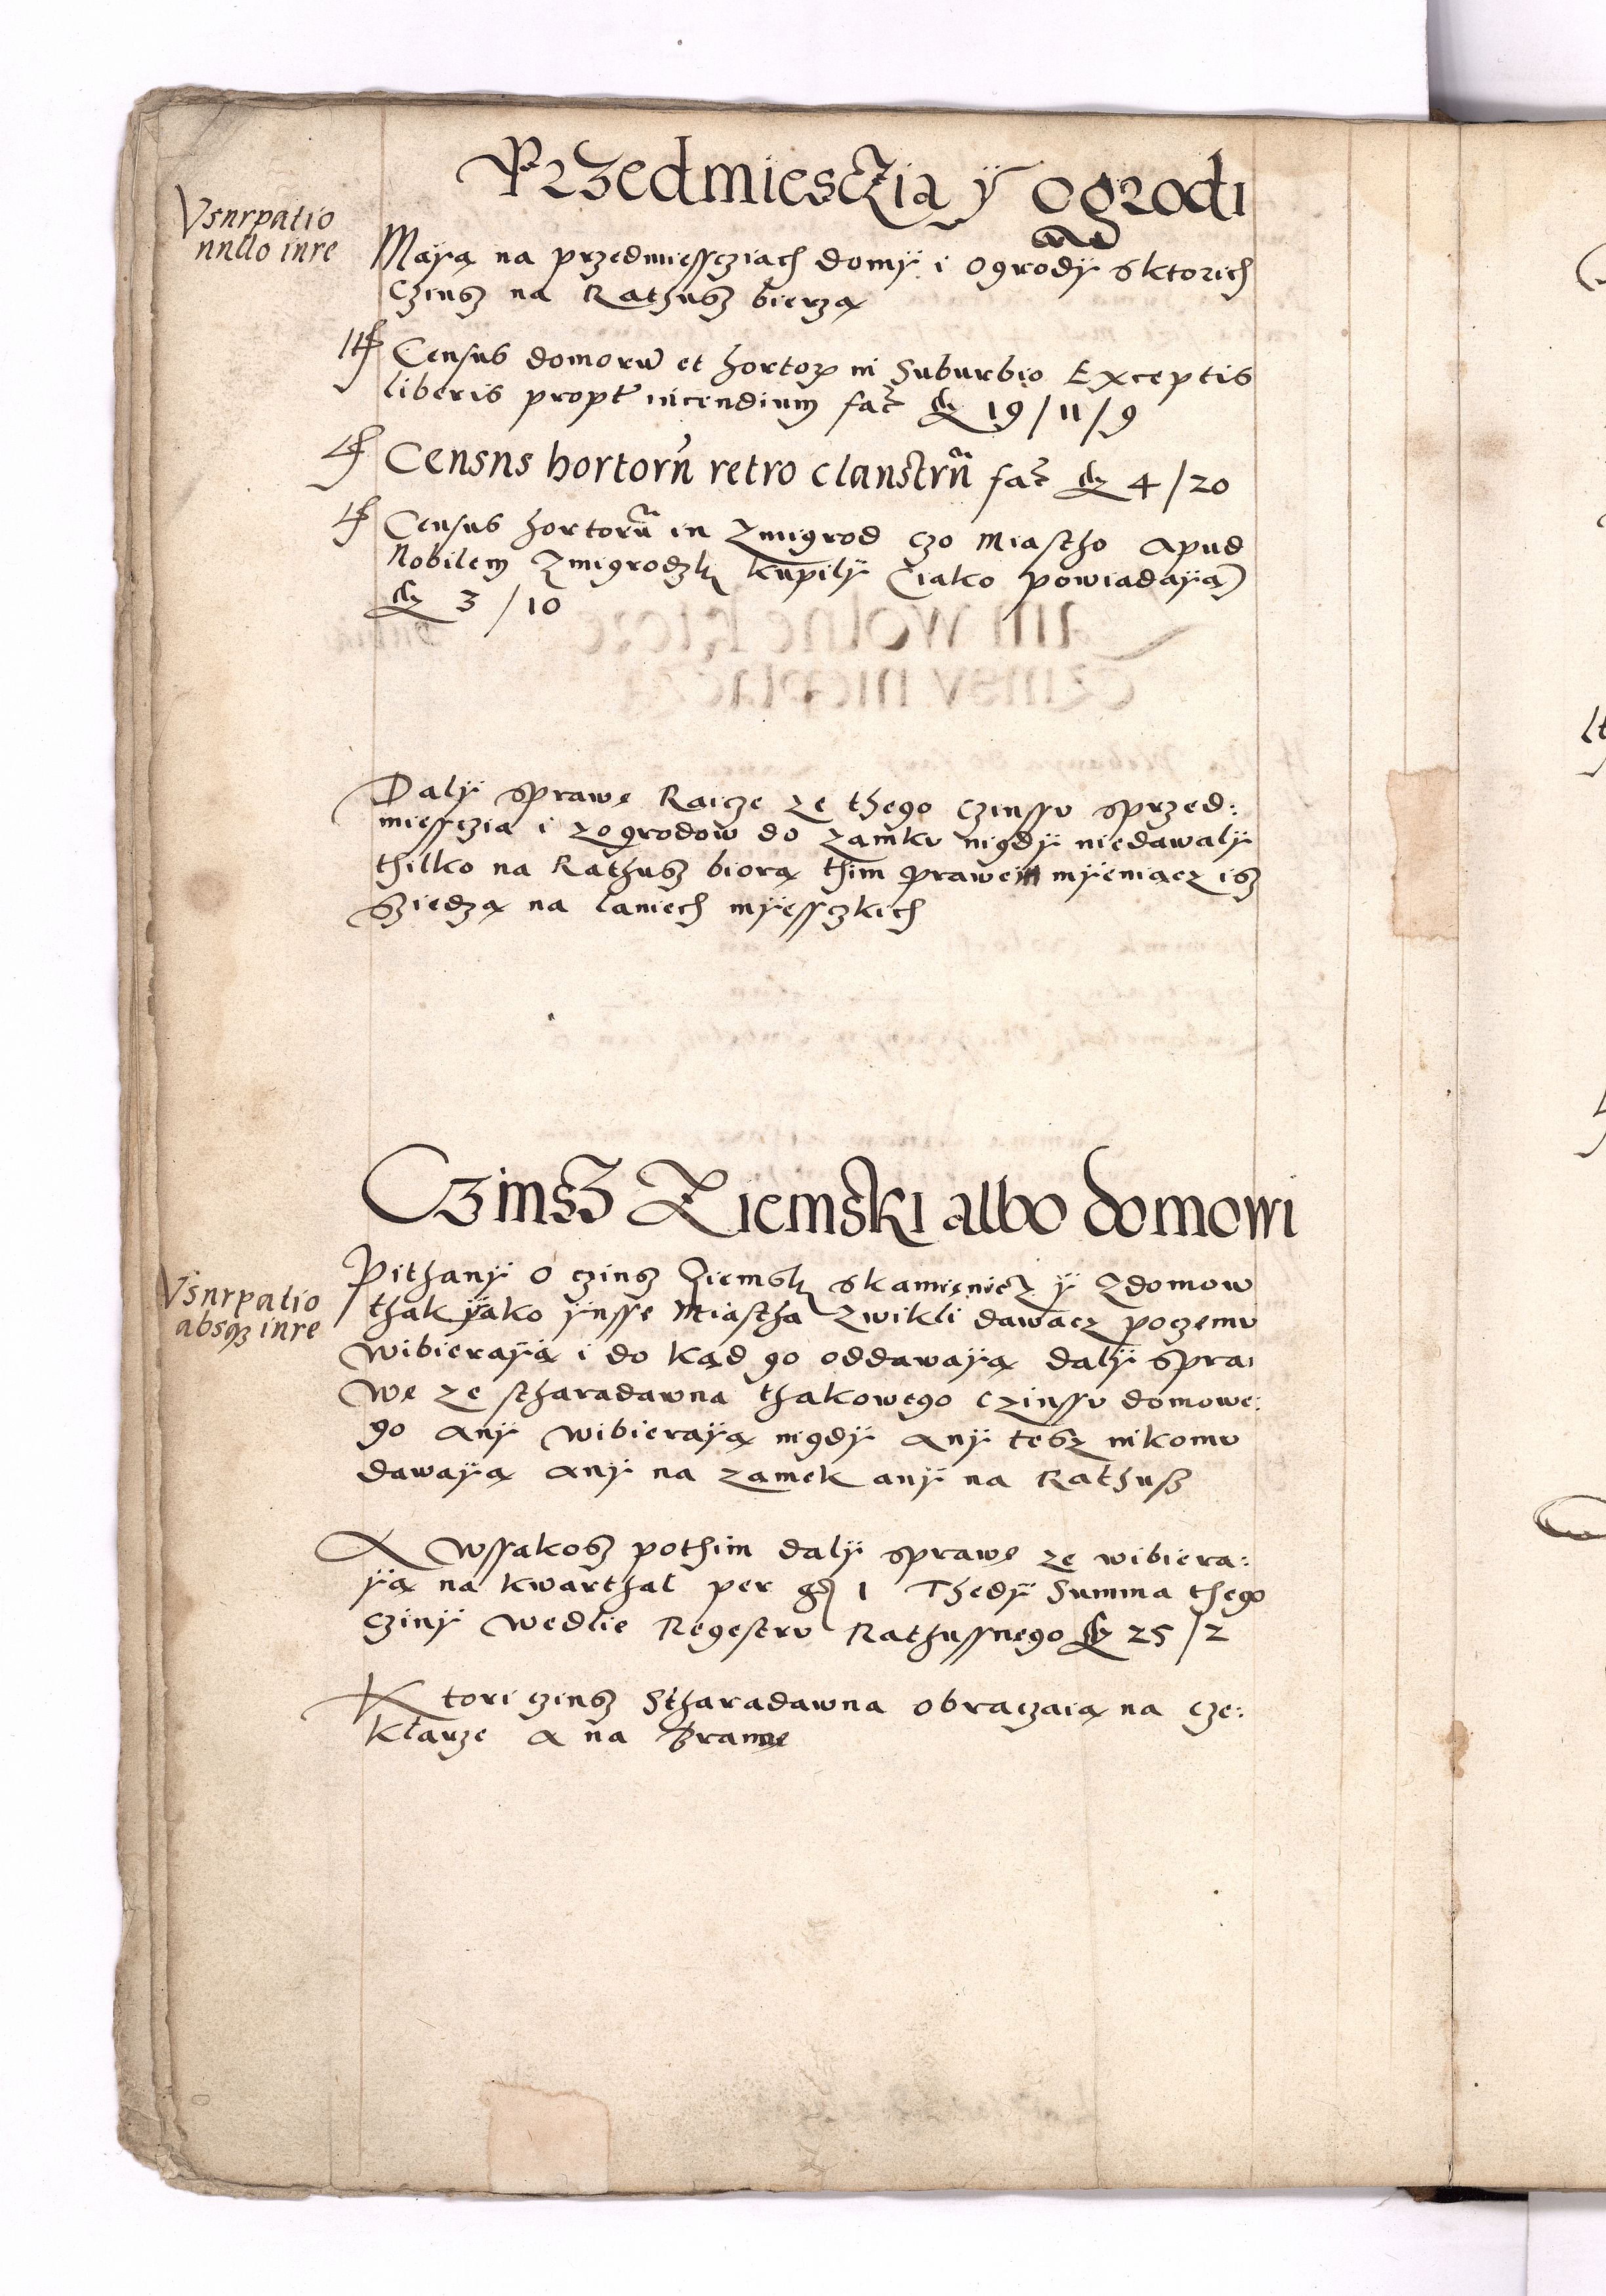 Przedmiesczia ÿ ogrodi
Vsurpatio
nullo iure
Maÿą na przedmiesscziach domÿ i ogrodÿ sktorich
Czinsz na Rathusz bierzą
Itſ Census domorũ et hortoꝝ in Suburbio Exceptis
liberis propt̃ incendium fac̃ 19/11/9
Itſ Census hortorũ retro claustrũ fac̃ 4/20
Itſ Census hortorũ in Zmigrod czo Miastho apud
Nobilem Zmigrodzk kupilÿ (iako powiadaÿą)
3/10
Dalÿ sprawe Raicze ze thego czinssu sprzed:
miessczia i zogrodow do zamku nigdÿ niedawalÿ
thilko na Rathusz biorą thim prawem mÿeniącz isz
Sziedzą na laniech mÿessczkich
Czinsz Ziemski albo domowi
Vsurpatio
absqꝫ iure
Pithanÿ o czinsz Ziemsk skamienicz ÿ Zdomow
thak ÿako ÿnsse Miastha zwikli dawacz poczemu
wibieraÿą i do kąd go oddawaÿą dalÿ spra
we ze stharadawna thakowego czinssu domowe:
go anÿ wibieraÿą nigdÿ anÿ tesz nikomu
dawaÿą anÿ na zamek anÿ na Rathusz
A wssakosz pothim dalÿ sprawe ze wibiera:
ÿą na kwarthal per gꝭ 1 Thedÿ Summa thego
czinÿ wedlie Regestru Rathussnego 25/2
Ktori czinsz Stharadawna obraczaią na cze:
klarze a na Brame